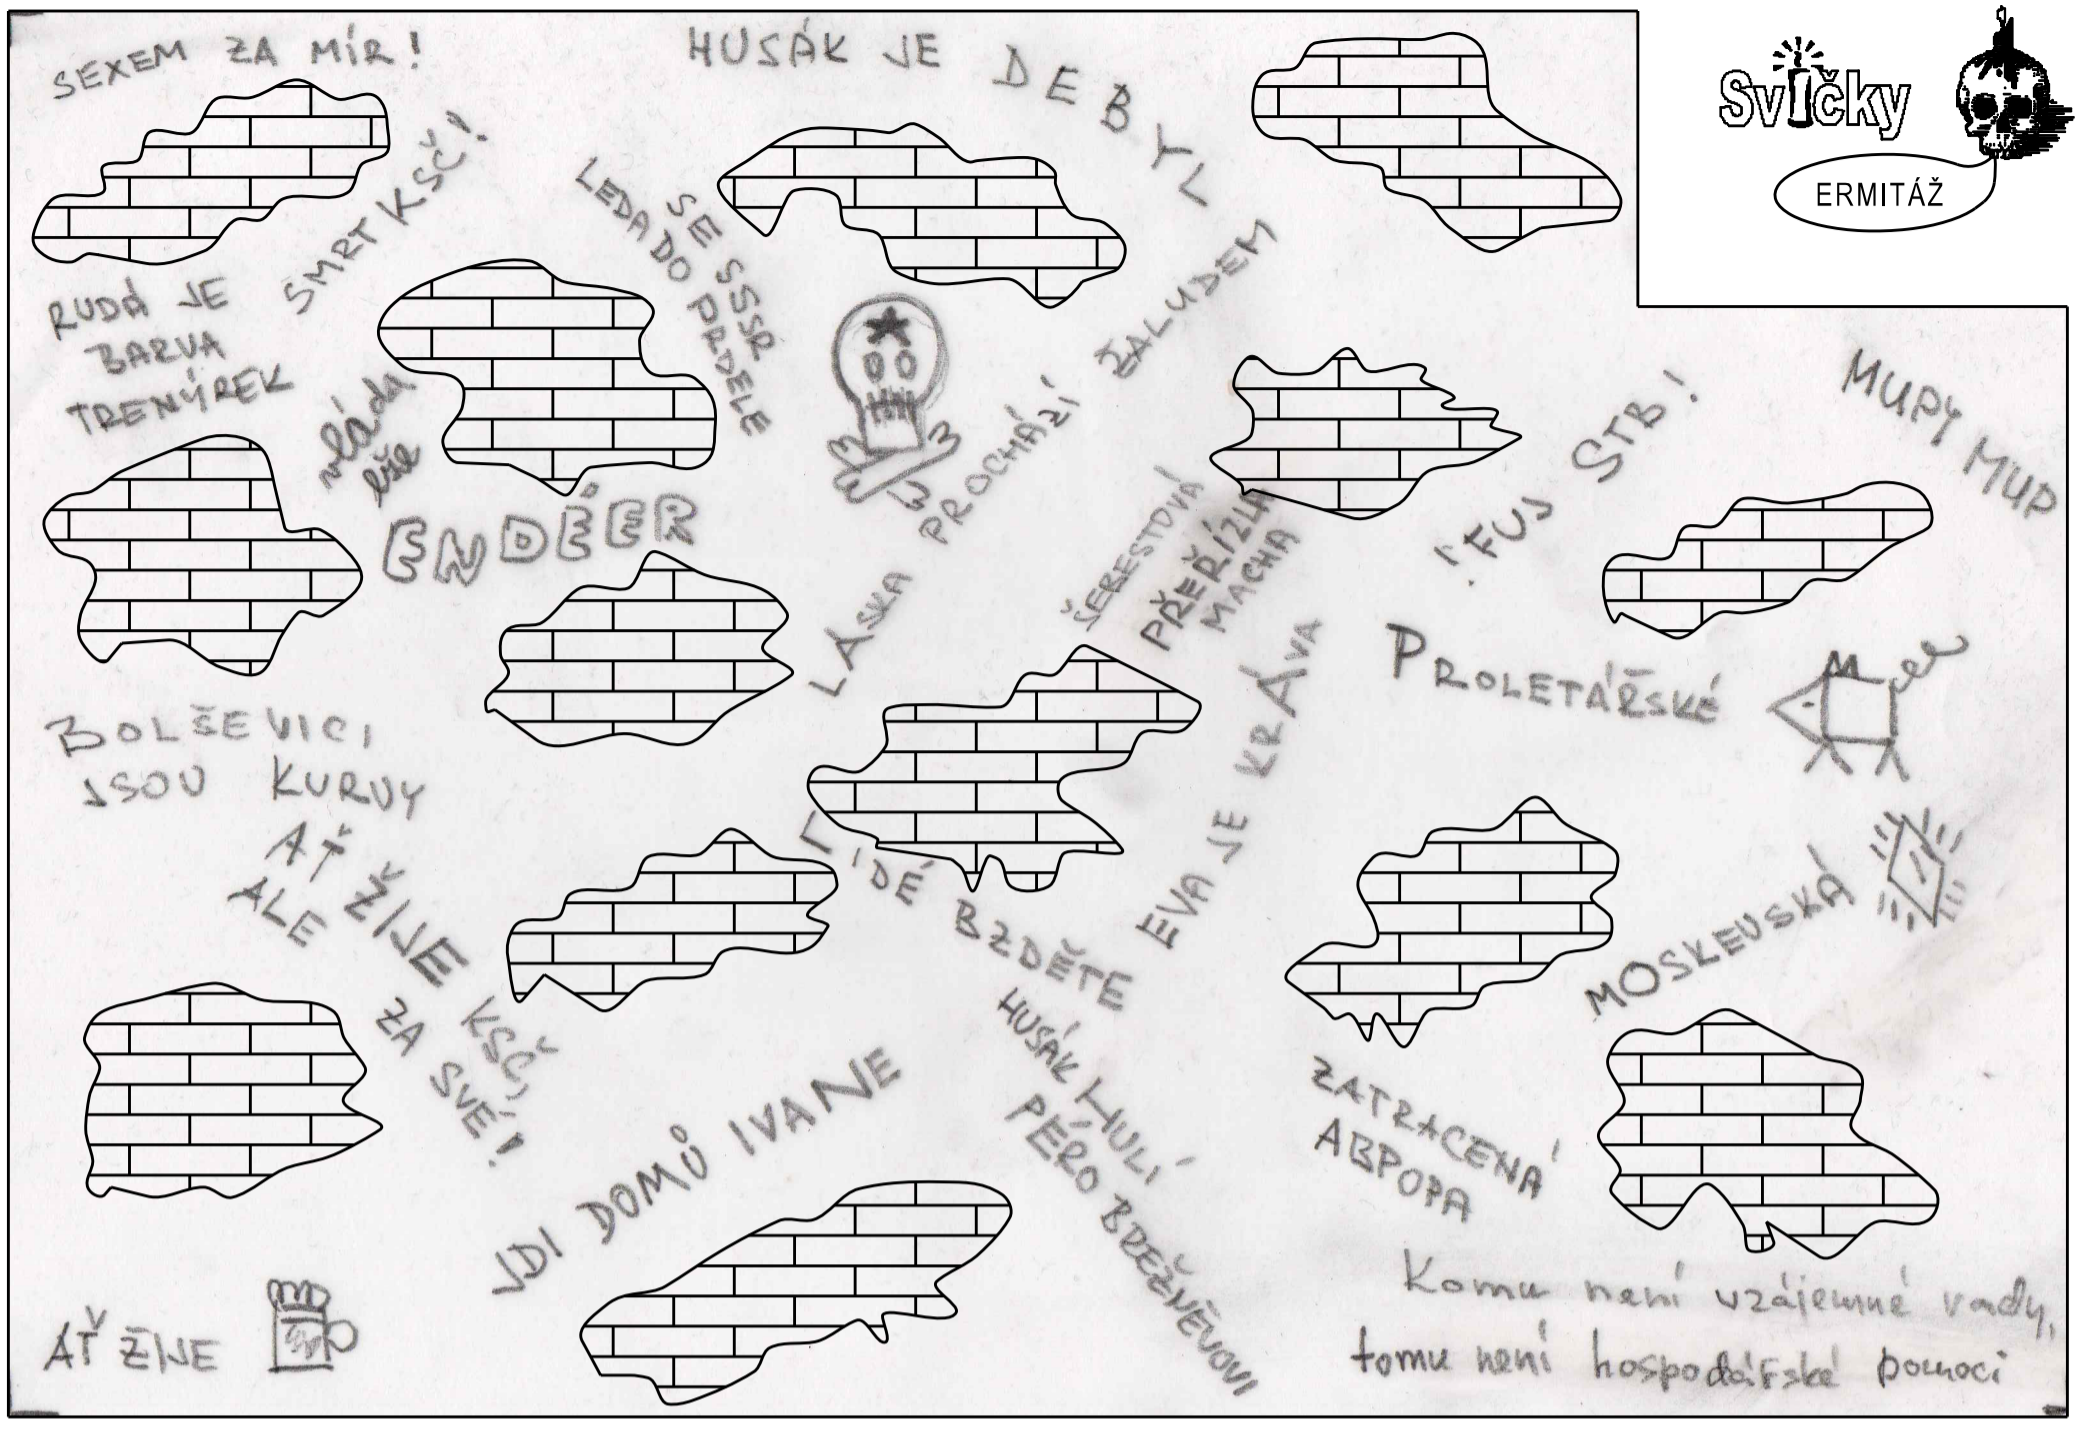 SEXEM ZA MÍR!
HUSÁK JE DEBYL
Svíčky
ERMITÁŽ
SMRT KSČ!
SE SSSR
LEDA DO PRDELE
RUDÁ JE
BARVA
TRENÝREK
vláda
lže
ENDÉER
LÁSKA PROCHÁZÍ ŽALUDEM
ŠEBESTOVÁ
PŘEŘÍZLA
MACHA
!FUJ STB!
MUPY MUP
PROLETÁŘSKÉ
BOLŠEVICI
JSOU KURVY
AŤ ŽIJE KSČ,
ALE ZA SVÉ!
LIDÉ BZDĚTE
EVA JE KRÁVA
MOSKEVSKÁ
HUSÁK HULÍ
PÉRO BREŽNĚVOVI
ZATRACENÁ
ABPOPA
JDI DOMŮ IVANE
AŤ ŽIJE
Komu není vzájemné rady,
tomu není hospodářské pomoci